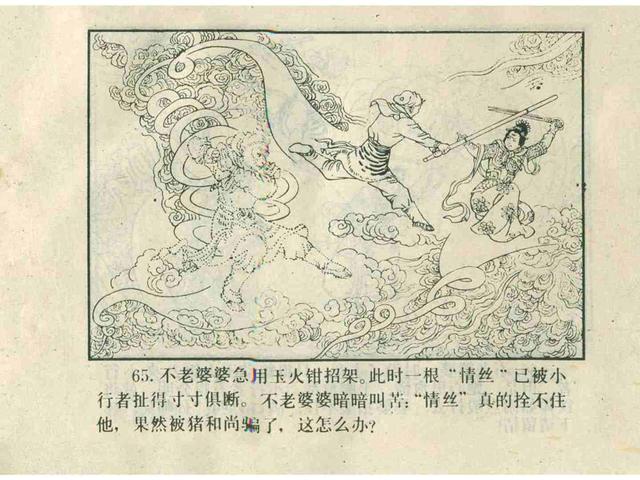 65. 不老婆婆急用玉火钳招架。此时一根“情丝”已被小
行者扯得寸寸俱断。不老婆婆暗暗叫苦：“情丝”真的拴不住
他，果然被猪和尚骗了，这怎么办？